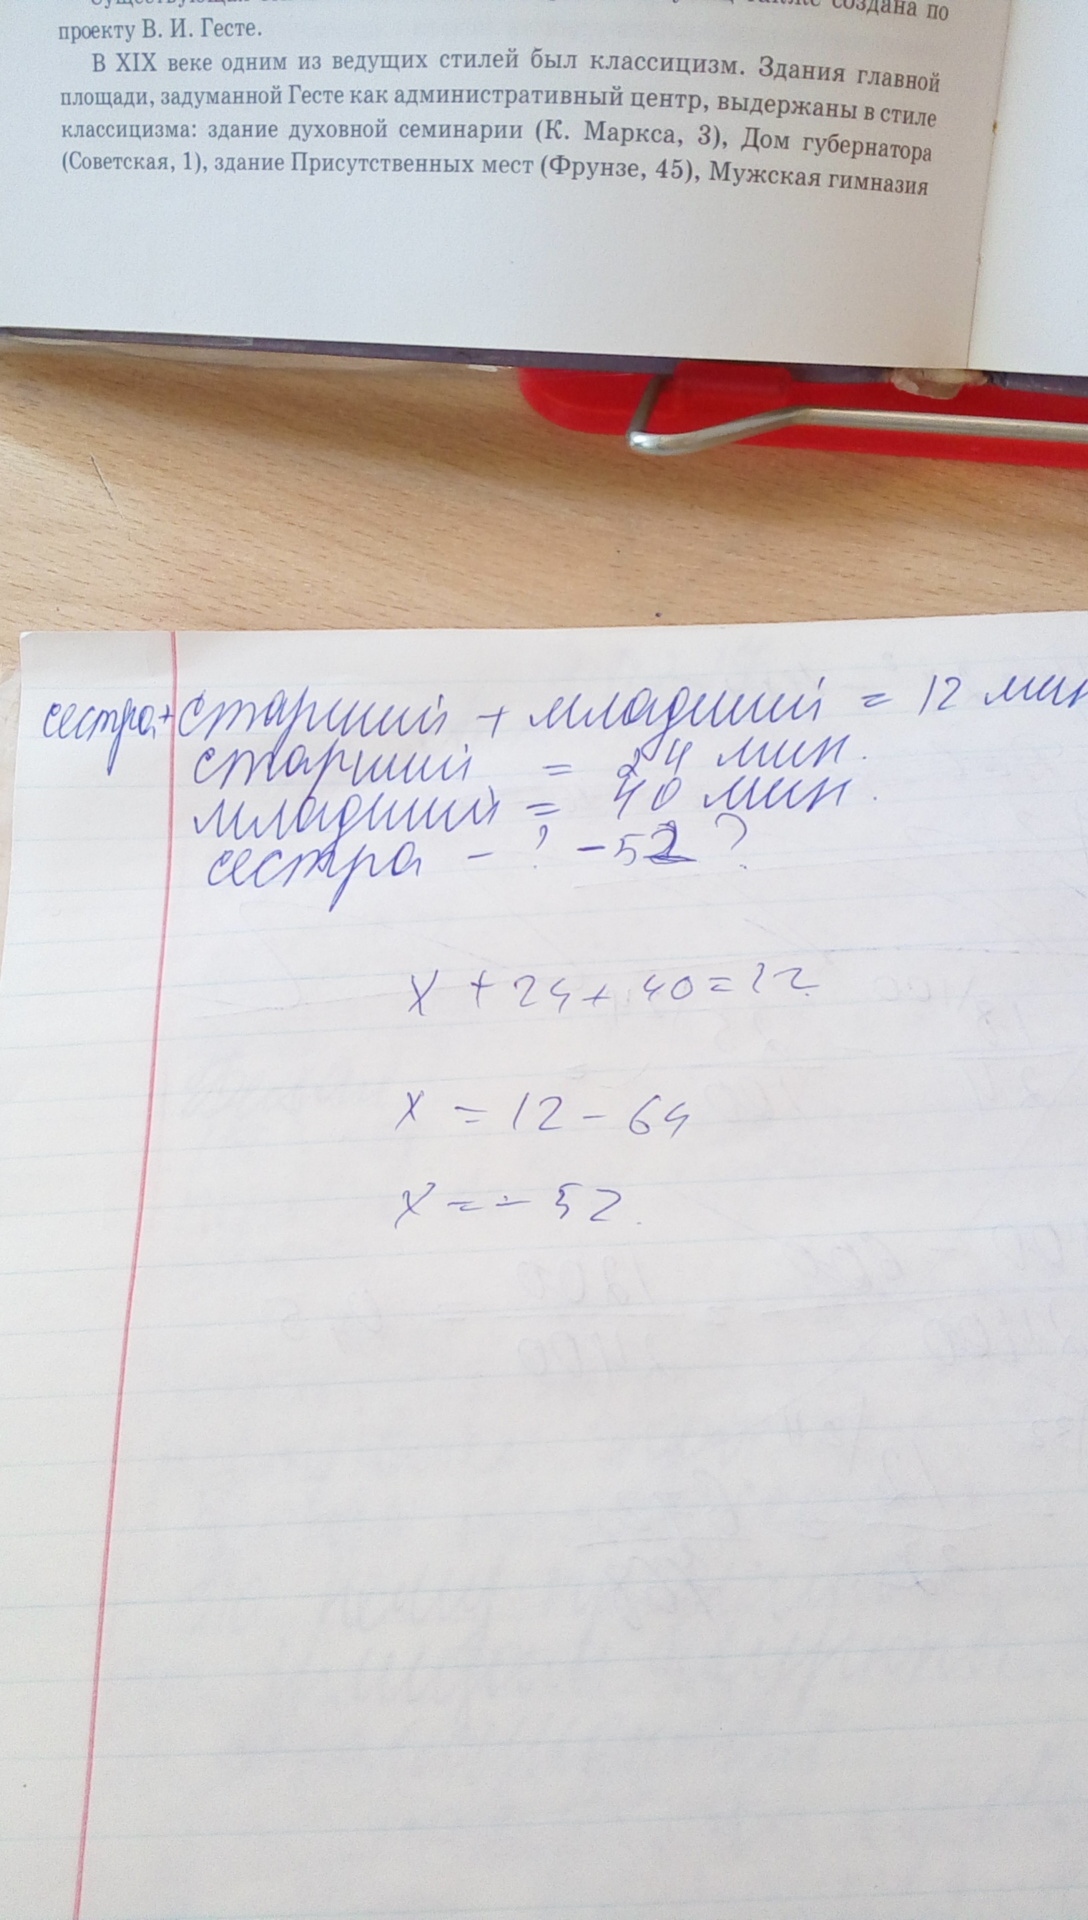 создана по
проекту В. И. Гесте.
В XIX веке одним из ведущих стилей был классицизм. Здания главной
площади, задуманной Гесте как административный центр, выдержаны в стиле
классицизма: здание духовной семинарии (К. Маркса, 3), Дом губернатора
(Советская, 1), здание Присутственных мест (Фрунзе, 45), Мужская гимназия
сестра + старший + младший = 12 мин
старший = 24 мин.
младший = 40 мин.
сестра - ? - 52 ?
x + 24 + 40 = 12
x = 12 - 64
x = - 52.